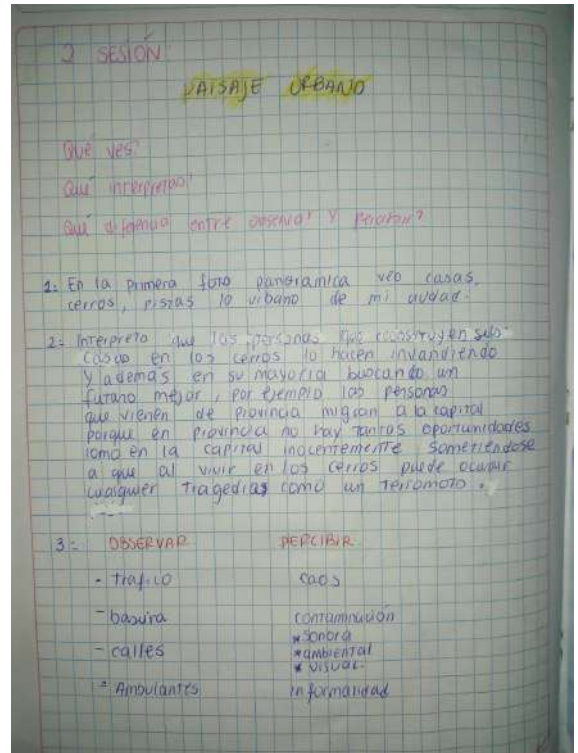 2 SESIÓN
PAISAJE URBANO
Qué ves?
Qué interpretas?
Qué diferencia entre observar y percibir?
1: En la primera foto panoramica veo casas,
cerros, pistas lo urbano de mi ciudad.
2: Interpreto que las personas que construyen sus
casas en los cerros lo hacen invandiendo
y además en su mayoría buscando un
futuro mejor, por ejemplo las personas
que vienen de provincia migran a la capital
porque en provincia no hay tantas oportunidades
como en la capital inocentemente sometiendose
a que al vivir en los cerros puede ocurrir
cualquier tragedias como un terromoto.
3: OBSERVAR PERCIBIR
- trafico caos
- basura contaminación
* sonora
- calles * ambiental
* visual.
- Ambulantes informalidad